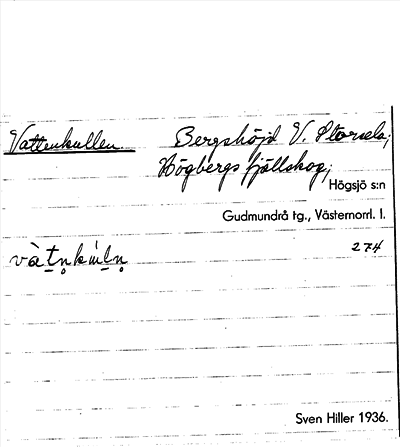 Vattenkullen. Bergshöjd V. Storsela;
Högbergs fjällskog;
Högsjö s:n
Gudmundrå tg., Västernorrl. l.
vàtn̥kùln̥ 274
Sven Hiller 1936.